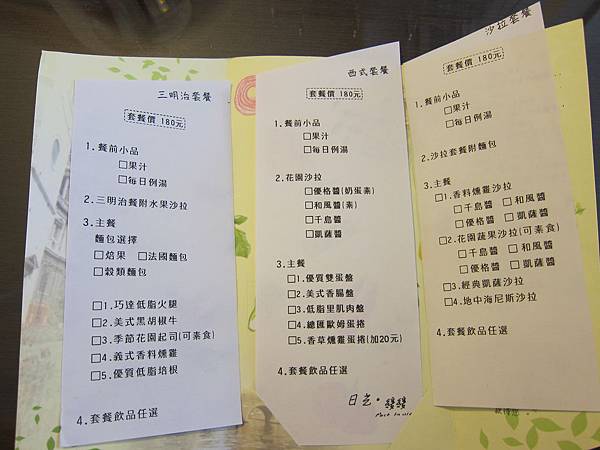 三明治套餐
套餐價 180元
1.餐前小品
□果汁
□每日例湯
2.三明治餐附水果沙拉
3.主餐
麵包選擇
□焙果 □法國麵包
□穀類麵包
□1.巧達低脂火腿
□2.美式黑胡椒牛
□3.季節花園起司(可素食)
□4.義式香料燻雞
□5.優質低脂培根
4.套餐飲品任選
西式套餐
套餐價 180元
1.餐前小品
□果汁
□每日例湯
2.花園沙拉
□優格醬(奶蛋素)
□和風醬(素)
□千島醬
□凱薩醬
3.主餐
□1.優質雙蛋盤
□2.美式香腸盤
□3.低脂里肌肉盤
□4.總匯歐姆蛋捲
□5.香草燻雞蛋捲(加20元)
4.套餐飲品任選
日光·
沙拉套餐
套餐價 180元
1.餐前小品
□果汁
□每日例湯
2.沙拉套餐附麵包
3.主餐
□1.香料燻雞沙拉
□千島醬 □和風醬
□優格醬 □凱薩醬
□2.花園蔬果沙拉(可素食)
□千島醬 □和風醬
□優格醬 □凱薩醬
□3.經典凱薩沙拉
□4.地中海尼斯沙拉
4.套餐飲品任選